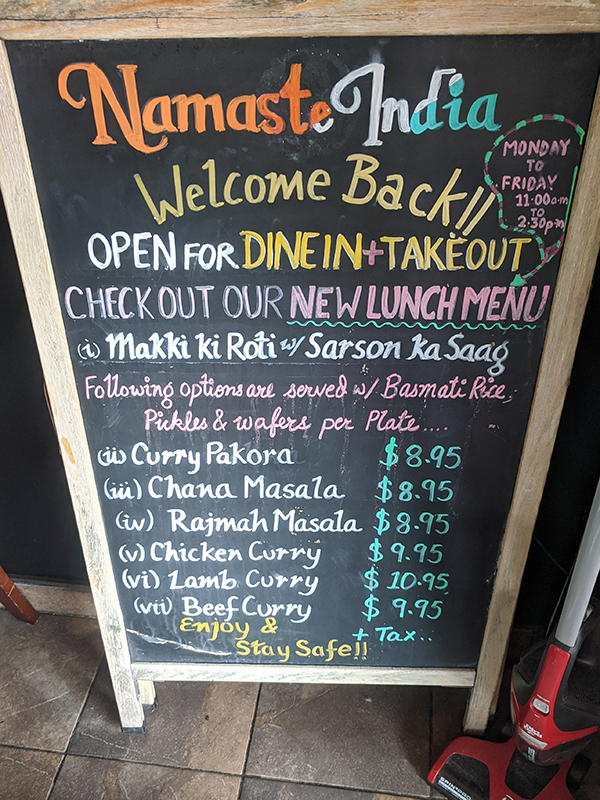 Namaste India
Welcome Back!!
MONDAY
TO
FRIDAY
11:00a.m
TO
2:30p.m
OPEN FOR DINE IN + TAKEOUT
CHECK OUT OUR NEW LUNCH MENU
(i) Makki ki Roti w/ Sarson ka Saag
Following options are served w/ Basmati Rice,
Pickles & wafers per Plate....
(ii) Curry Pakora $8.95
(iii) Chana Masala $8.95
(iv) Rajmah Masala $8.95
(v) Chicken Curry $9.95
(vi) Lamb Curry $10.95
(vii) Beef Curry $9.95
Enjoy & + Tax..
Stay Safe!!